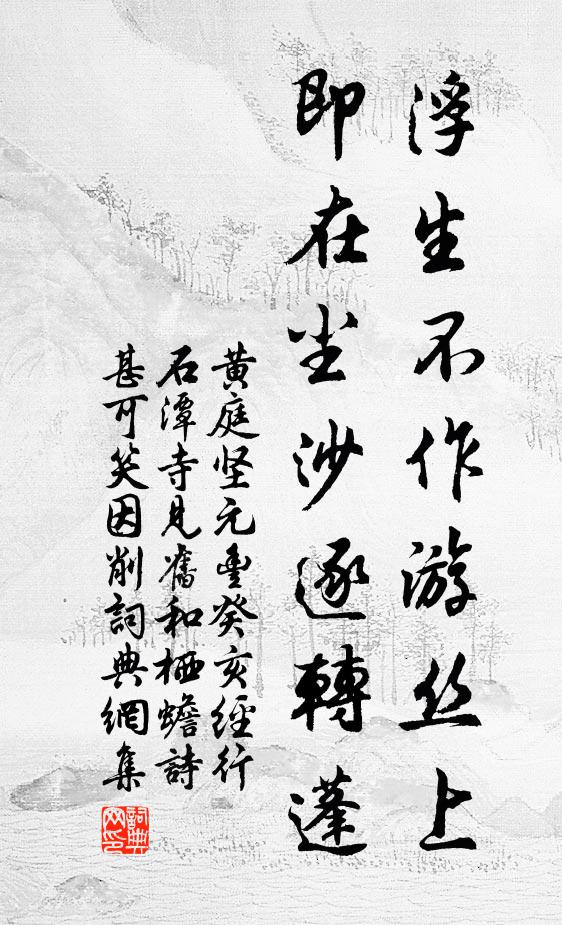 浮生不作游丝上
即在尘沙逐轉蓬
黄庭坚元豊癸亥經行
石潭寺見舊和栖蟾詩
甚可笑因削詞典網集
詞典
网印